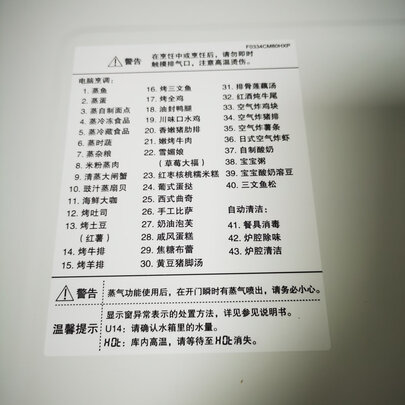 F0334CM80HXP
警告 在烹饪中或烹饪后，请勿即时
触摸排气口，注意高温烫伤。
电脑烹调：
1. 蒸鱼
2. 蒸蛋
3. 蒸自制面点
4. 蒸冷冻食品
5. 蒸冷藏食品
6. 蒸时蔬
7. 蒸杂粮
8. 米粉蒸肉
9. 清蒸大闸蟹
10. 豉汁蒸扇贝
11. 海鲜大咖
12. 烤吐司
13. 烤土豆
（红薯）
14. 烤牛排
15. 烤羊排
16. 烤三文鱼
17. 烤全鸡
18. 油封鸭腿
19. 川味口水鸡
20. 香嫩猪肋排
21. 嫩烤牛肉
22. 雪媚娘
（草莓大福）
23. 红枣核桃糯米糕
24. 葡式蛋挞
25. 西式曲奇
26. 手工比萨
27. 奶油泡芙
28. 戚风蛋糕
29. 焦糖布蕾
30. 黄豆猪脚汤
31. 排骨莲藕汤
32. 红酒炖牛尾
33. 空气炸鸡块
34. 空气炸猪排
35. 空气炸薯条
36. 日式空气炸虾
37. 自制酸奶
38. 宝宝粥
39. 宝宝酸奶溶豆
40. 三文鱼松
自动清洁：
41. 餐具消毒
42. 炉腔除味
43. 炉腔清洁
警告 蒸气功能使用后，在开门瞬时有蒸气喷出，请务必小心。
温馨提示
显示窗异常表示的处置方法，详见参见说明书。
U14：请确认水箱里的水量。
HOt：库内高温，请等待至HOt消失。